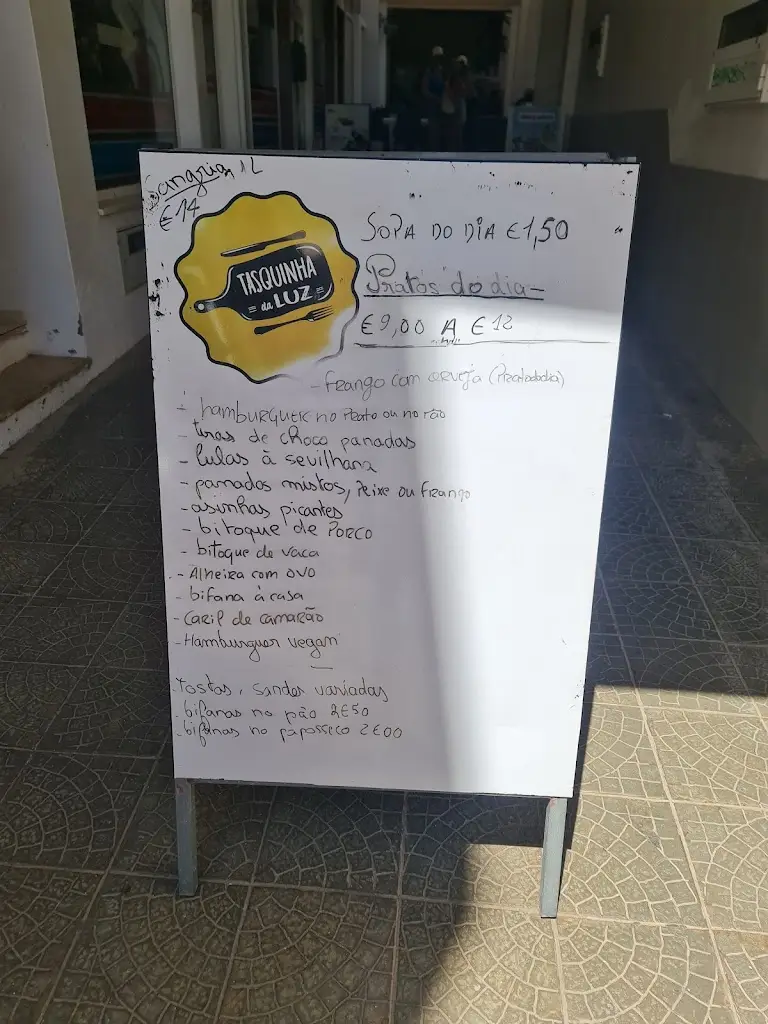 Sangria 1L
€14
TASQUINHA
da LUZ
SOPA DO DIA €1,50
Pratos do dia-
€9,00 A €12
- frango com cerveja (Prato do dia)
- hamburguere no Prato ou no Pão
- tiras de choco panadas
- lulas à sevilhana
- panados mistos, Peixe ou frango
- asinhas picantes
- bitoque de PORCO
- bitoque de vaca
- Alheira com ovo
- bifana à casa
- Caril de camarão
- Hamburguer vegan
Tostas, Sandes variadas
- bifanas no pão 2€50
- bifanas no paposseco 2€00